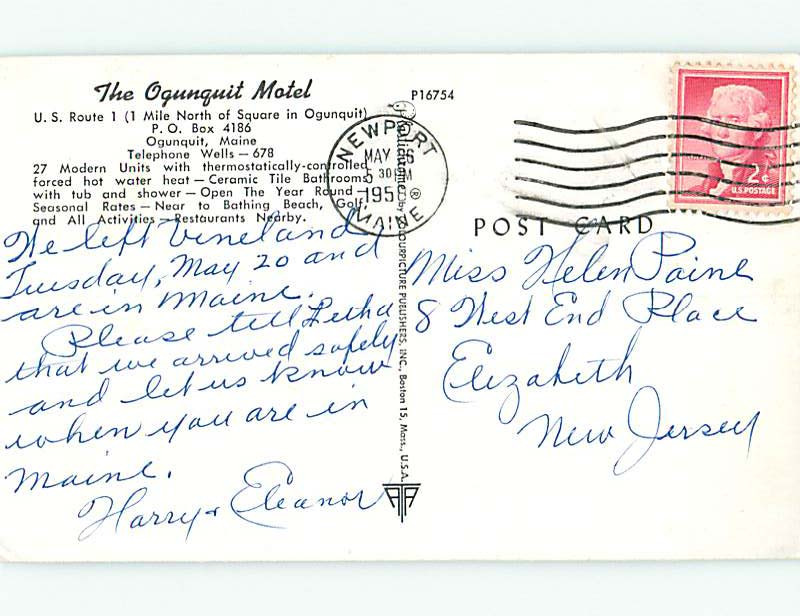 The Ogunquit Motel
U. S. Route 1 (1 Mile North of Square in Ogunquit)
P. O. Box 4186
Ogunquit, Maine
Telephone Wells — 678
27 Modern Units with thermostatically-controlled
forced hot water heat — Ceramic Tile Bathrooms
with tub and shower — Open The Year Round —
Seasonal Rates — Near to Bathing Beach, Golf
and All Activities — Restaurants Nearby.
We left Vineland
Tuesday, May 20 and
are in Maine.
Please tell Letha
that we arrived safely
and let us know
when you are in
Maine.
Harry + Eleanor
P16754
by COLOURPICTURE PUBLISHERS, INC., Boston 15, Mass., U.S.A.
NEWPORT
MAY
30 PM
MAINE
2¢
U.S. POSTAGE
POST CARD
Miss Helen Paine
8 West End Place
Elizabeth
New Jersey